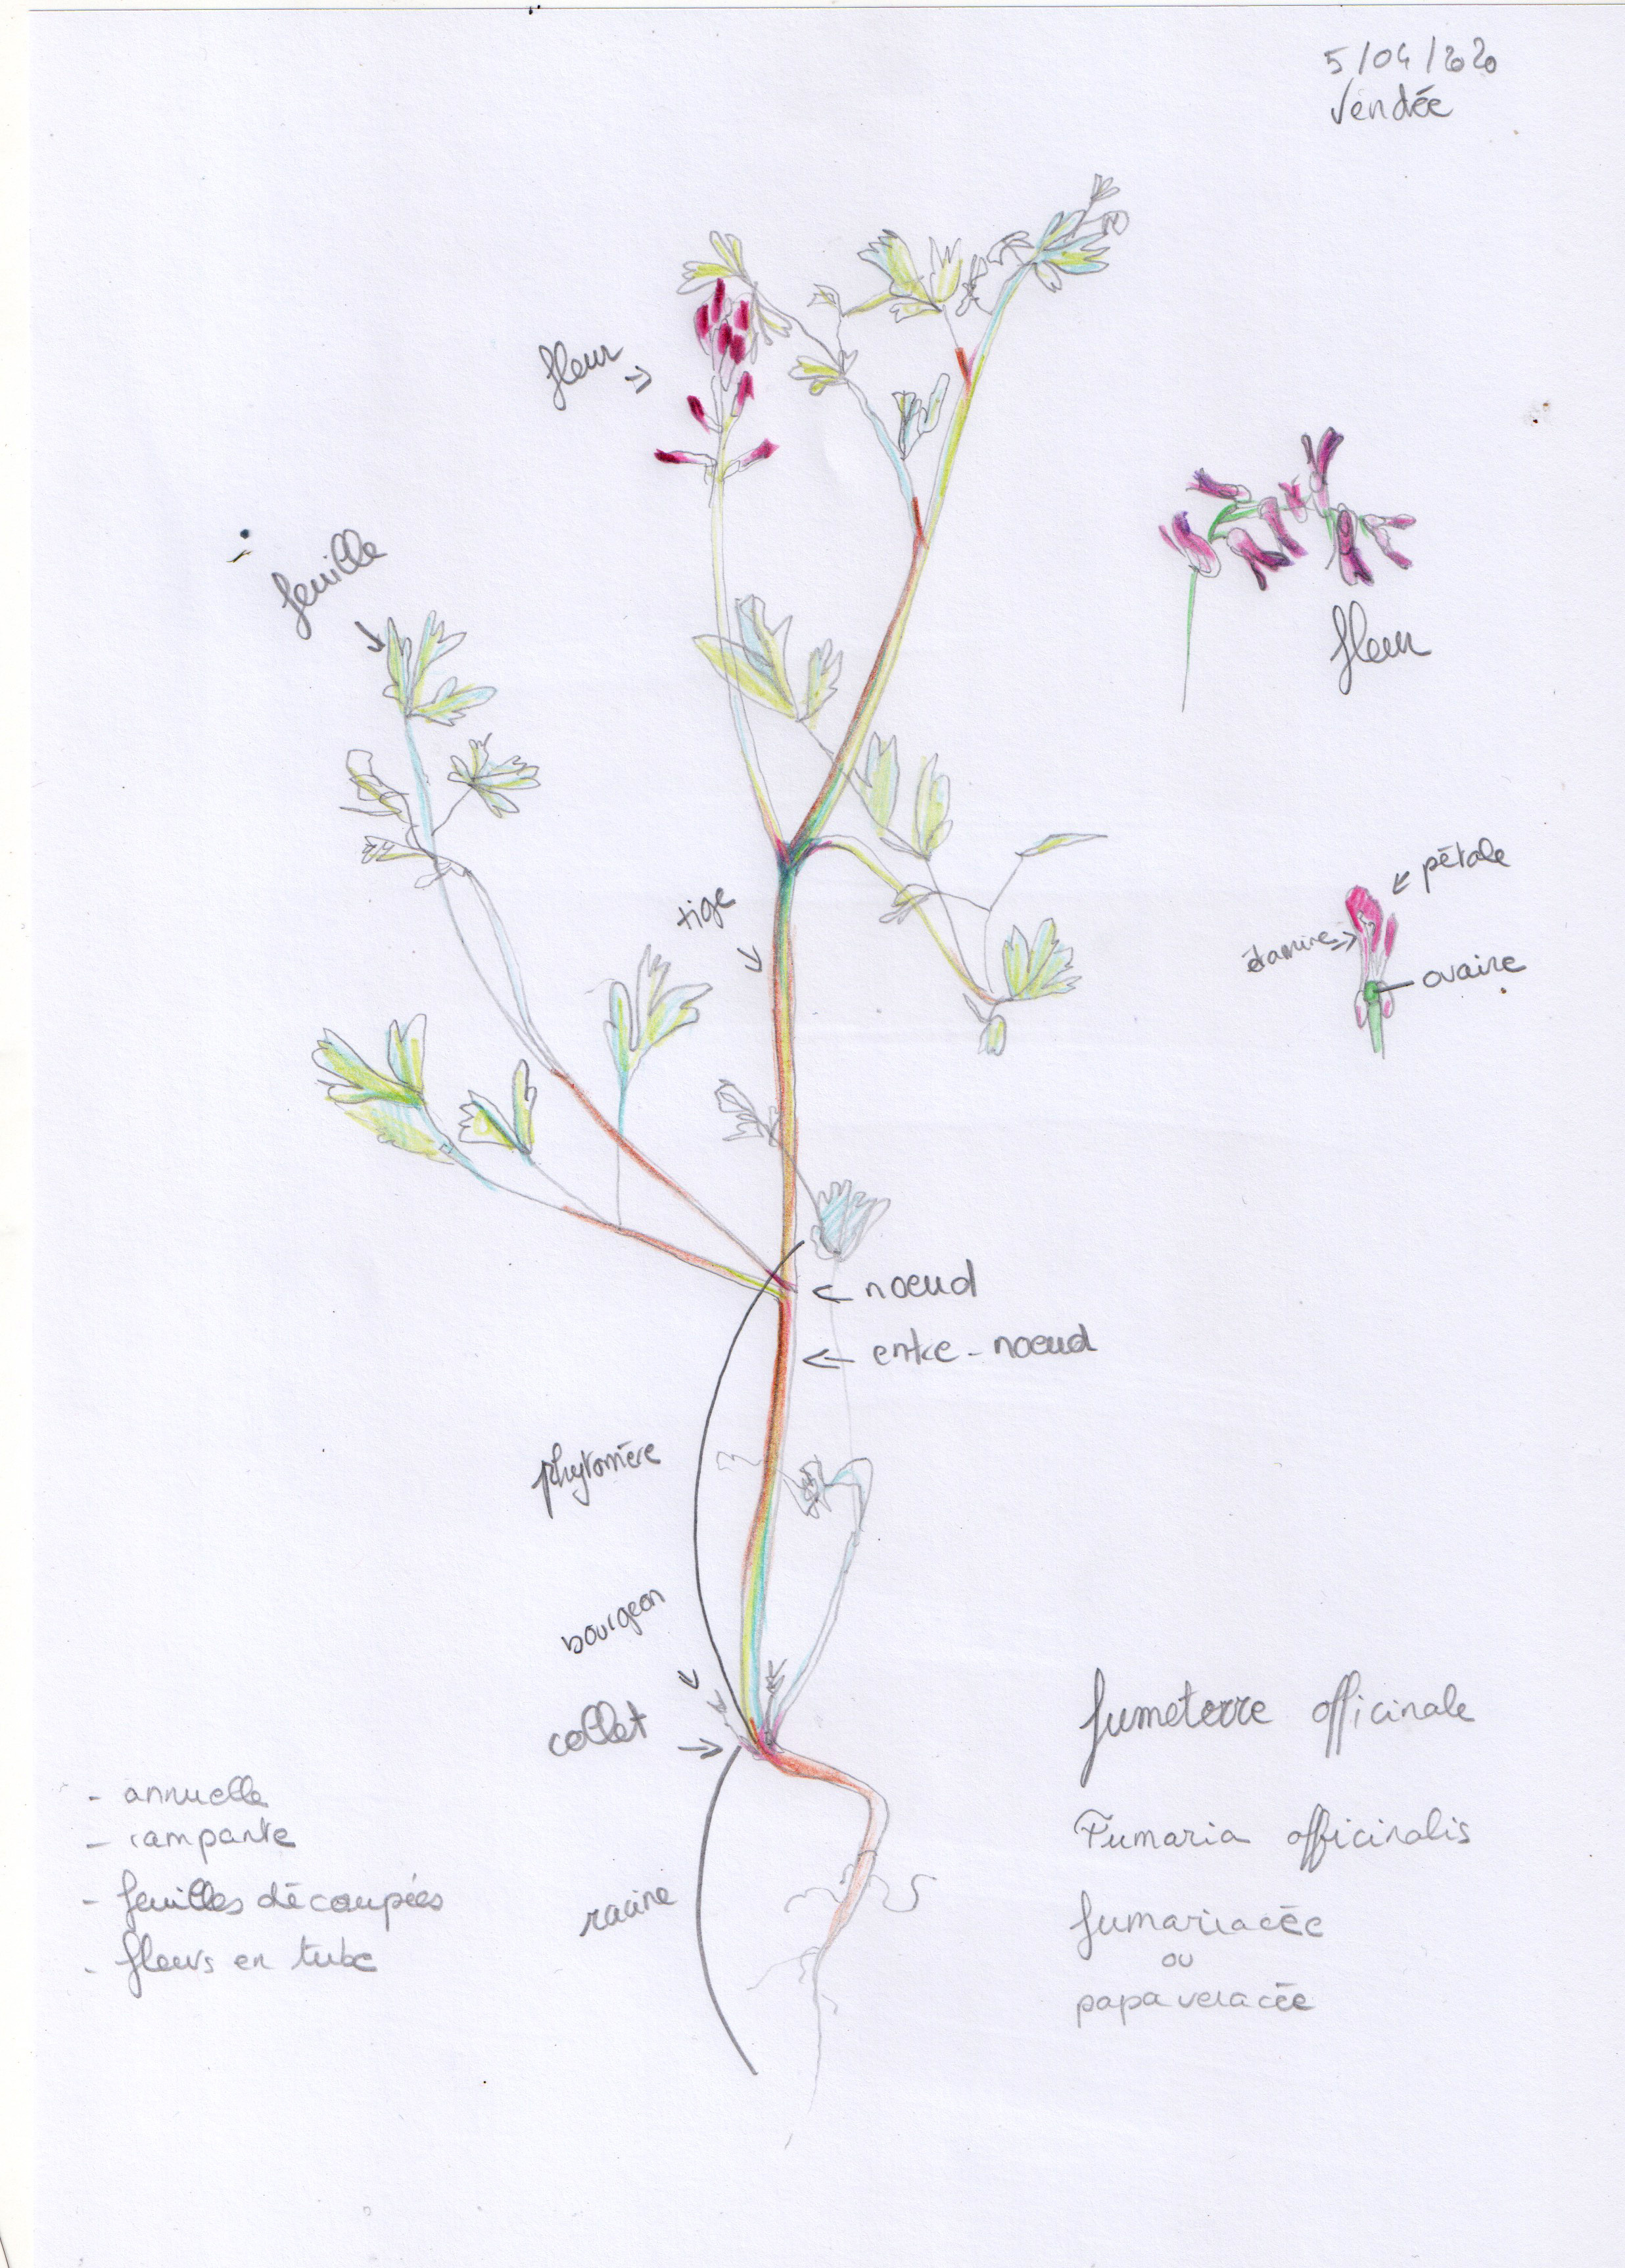 5/04/2020
Vendée
fleur
feuille
fleur
pétale
étamine
ovaire
tige
noeud
entre-noeud
phytomère
bourgeon
collet
racine
- annuelle
- rampante
- feuilles découpées
- fleurs en tube
fumeterre officinale
Fumaria officinalis
fumariacée
ou
papaveracée